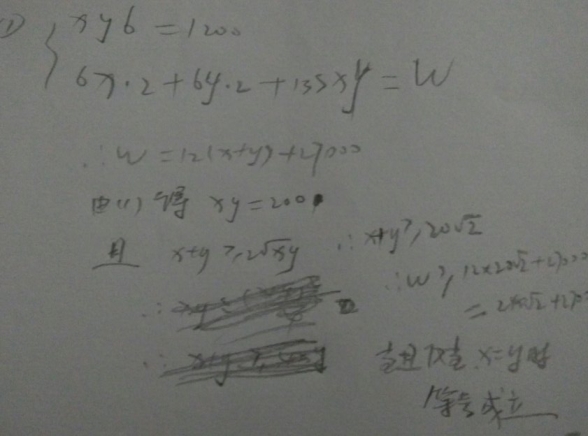 (1) { xy6 = 1200
6x·2+6y·2+135xy = W
∴ W = 12(x+y)+27000
由(1)得 xy=200
且 x+y≥2√xy ∴ x+y≥20√2
∴ W≥12×20√2+27000
= 240√2+27000
当且仅当 x=y时
等号成立